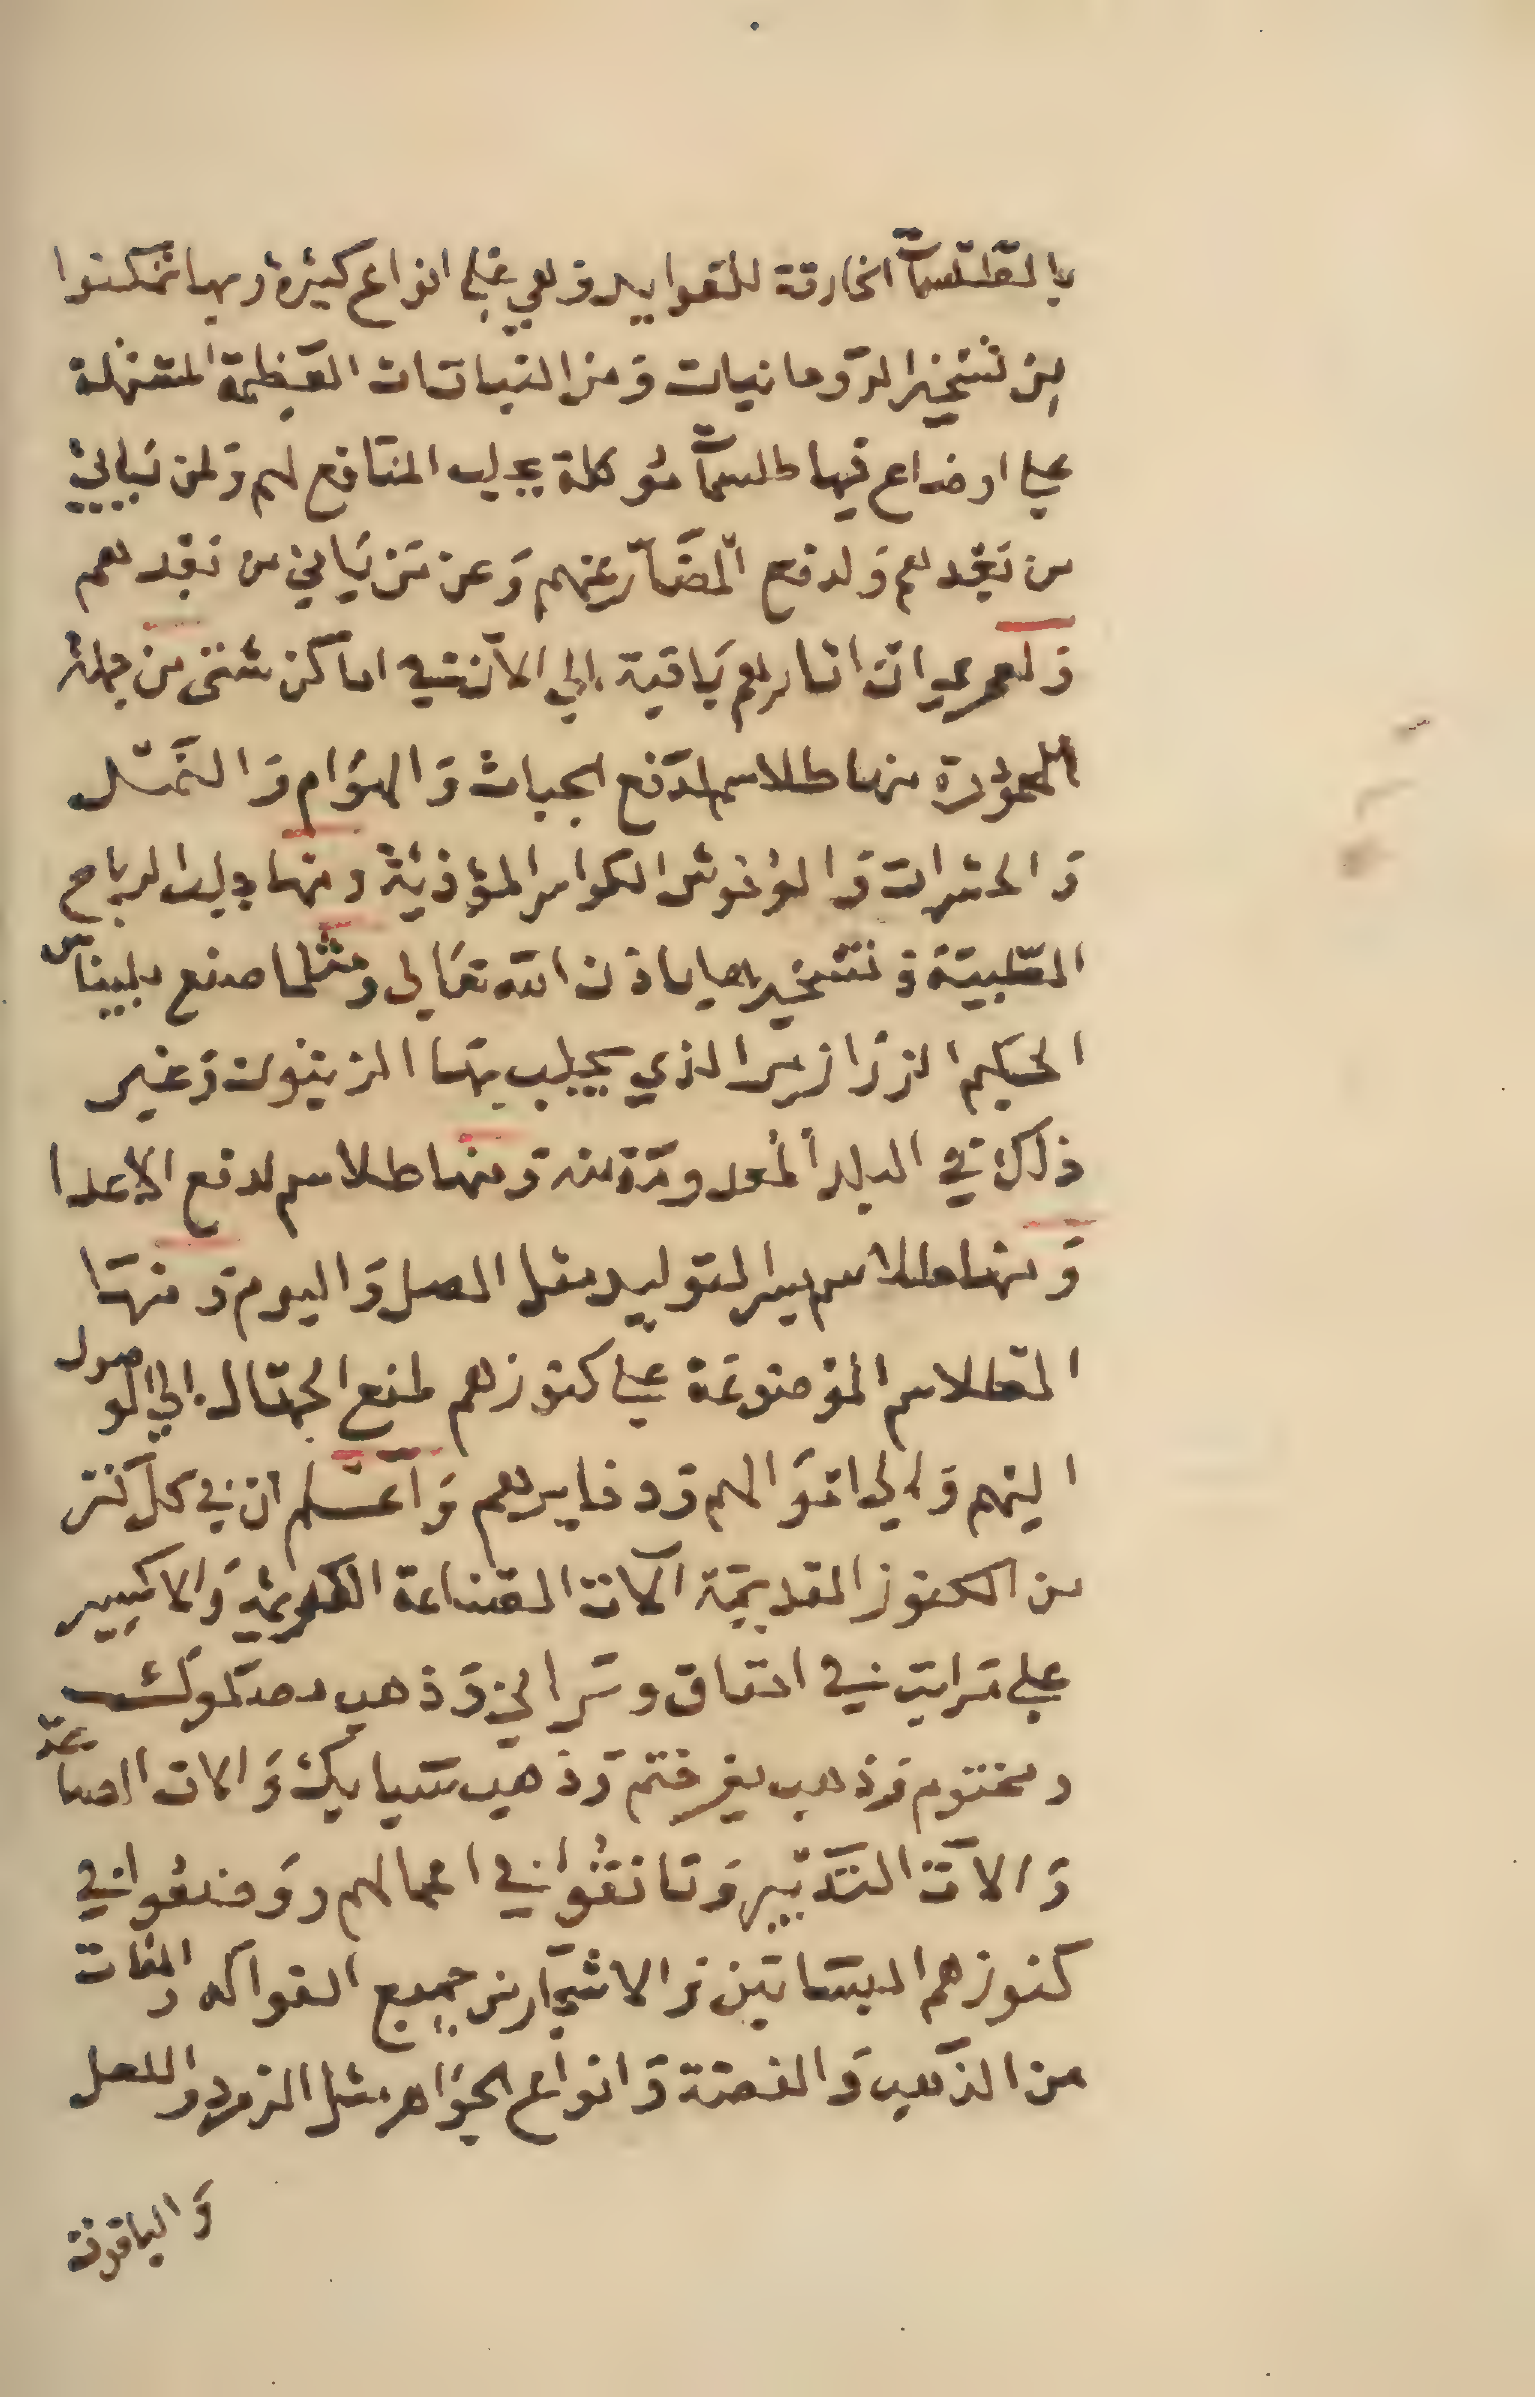 بالطلسمات الخارقة للعوايد وهي علي انواع كثيرة وبها تمكنوا
من تسخير الروحانيات ومن النباتات العظيمة المتصلة
علي اوضاع فيها طلسمات موكلة بجلب المنافع لهم ولمن ياتي
من بعدهم ولدفع المضار عنهم وعن من ياتي من بعدهم
ولعمري ان اثارهم باقية الي الان في اماكن شتي من جملة
المعمورة منها طلاسم لدفع الحيات والهوام والنمل
والحشرات والوحوش الكواسر المؤذية ومنها جلب الرياح
الطيبة وتسخيرها باذن الله تعالي ومثلما صنع بليناس
الحكيم الزرازير الذي يجلب بها الزيتون وغير
ذلك في البلد المعدودة منه ومنها طلاسم لدفع الاعدا
ومنها طلاسم لتوليد مثل العسل واليوم ومنها
الطلاسم الموضوعة علي كنوزهم لمنع الجهال الي الوصول
اليهم والي اموالهم ودخايرهم واعلم ان في كل كنز
من الكنوز القديمة الات الصناعة الكريمة والاكسير
علي مراتب في احقاق وبراني وذهب مصكوك
ومختوم وذهب بغير ختم وذهب سبايك والات الصاعد
والات التدبير وتانقوا في اعمالهم ووضعوا في
كنوزهم البساتين والاشجار من جميع الفواكه والنبات
من الذهب والفضة وانواع الجواهر مثل الزمرد واللعل
والياقوت